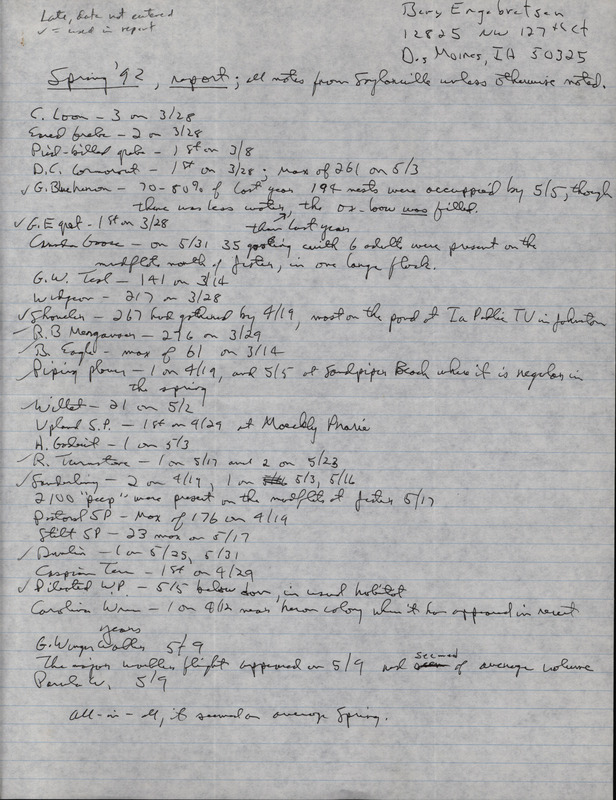 Late, date not entered
✓ = used in report
Bery Engebretsen
12825 NW 127th Ct
D.s Moines, IA 50325
Spring '92, report; all notes from Saylorville unless otherwise noted.
C. Loon - 3 on 3/28
Eared Grebe - 2 on 3/28
Pied-billed grebe - 1st on 3/8
D.C. Cormorant - 1st on 3/28; max of 261 on 5/3
✓ G. Blue heron - 70-80% of last year 194 nests were occuppied by 5/5, though
there was less water, the ox-bow was filled.
than last year
✓ G. Egret - 1st on 3/28
Canada Goose - on 5/31 35 gosling with 6 adults were present on the
mudflats north of Jester, in one large flock.
G.W. Teal - 141 on 3/14
Widgeon - 217 on 3/28
✓ Shoveler - 267 had gathered by 4/19, most on the pond at Ia Public TV in Johnston
R.B Merganser - 276 on 3/29
B. Eagle - max of 61 on 3/14
Piping plover - 1 on 4/19, and 5/5 at Sandpiper Beach where it is regular in
the spring
Willet - 21 on 5/2
Upland S.P. - 1st on 4/29 at Moeckly Prairie
H. Godwit - 1 on 5/3
R. Turnstone - 1 on 5/17 and 2 on 5/23
✓ Sanderling - 2 on 4/19, 1 on 5/3, 5/16
2100 "peep" were present on the mudflats at Jester 5/17
Pectoral SP - Max of 176 on 4/19
Stilt SP - 23 max on 5/17
✓ Dunlin - 1 on 5/25, 5/31
Caspian Tern - 1st on 4/29
✓ Pileated W.P. - 5/5 below dam, in usual habitat
Carolina Wren - 1 on 4/12 near heron colony when it has appeared in recent
years
G. Winged Warbler 5/9
The major warbler flight appeared on 5/9 and seemed of average volume
Parula W. 5/9
All-in-all, it seemed an average Spring.